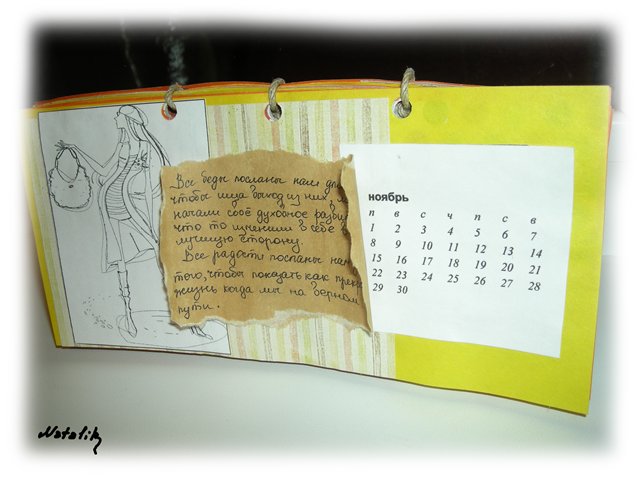 Все беды посланы нам
чтобы ища выход из них
начали своё духовное
что то изменили в себе
лучшую сторону.
Все радости посланы нам
того, чтобы показать как
жизнь когда мы на верном
пути.
ноябрь
п в с ч п с в
1 2 3 4 5 6 7
8 9 10 11 12 13 14
15 16 17 18 19 20 21
22 23 24 25 26 27 28
29 30
Natalik